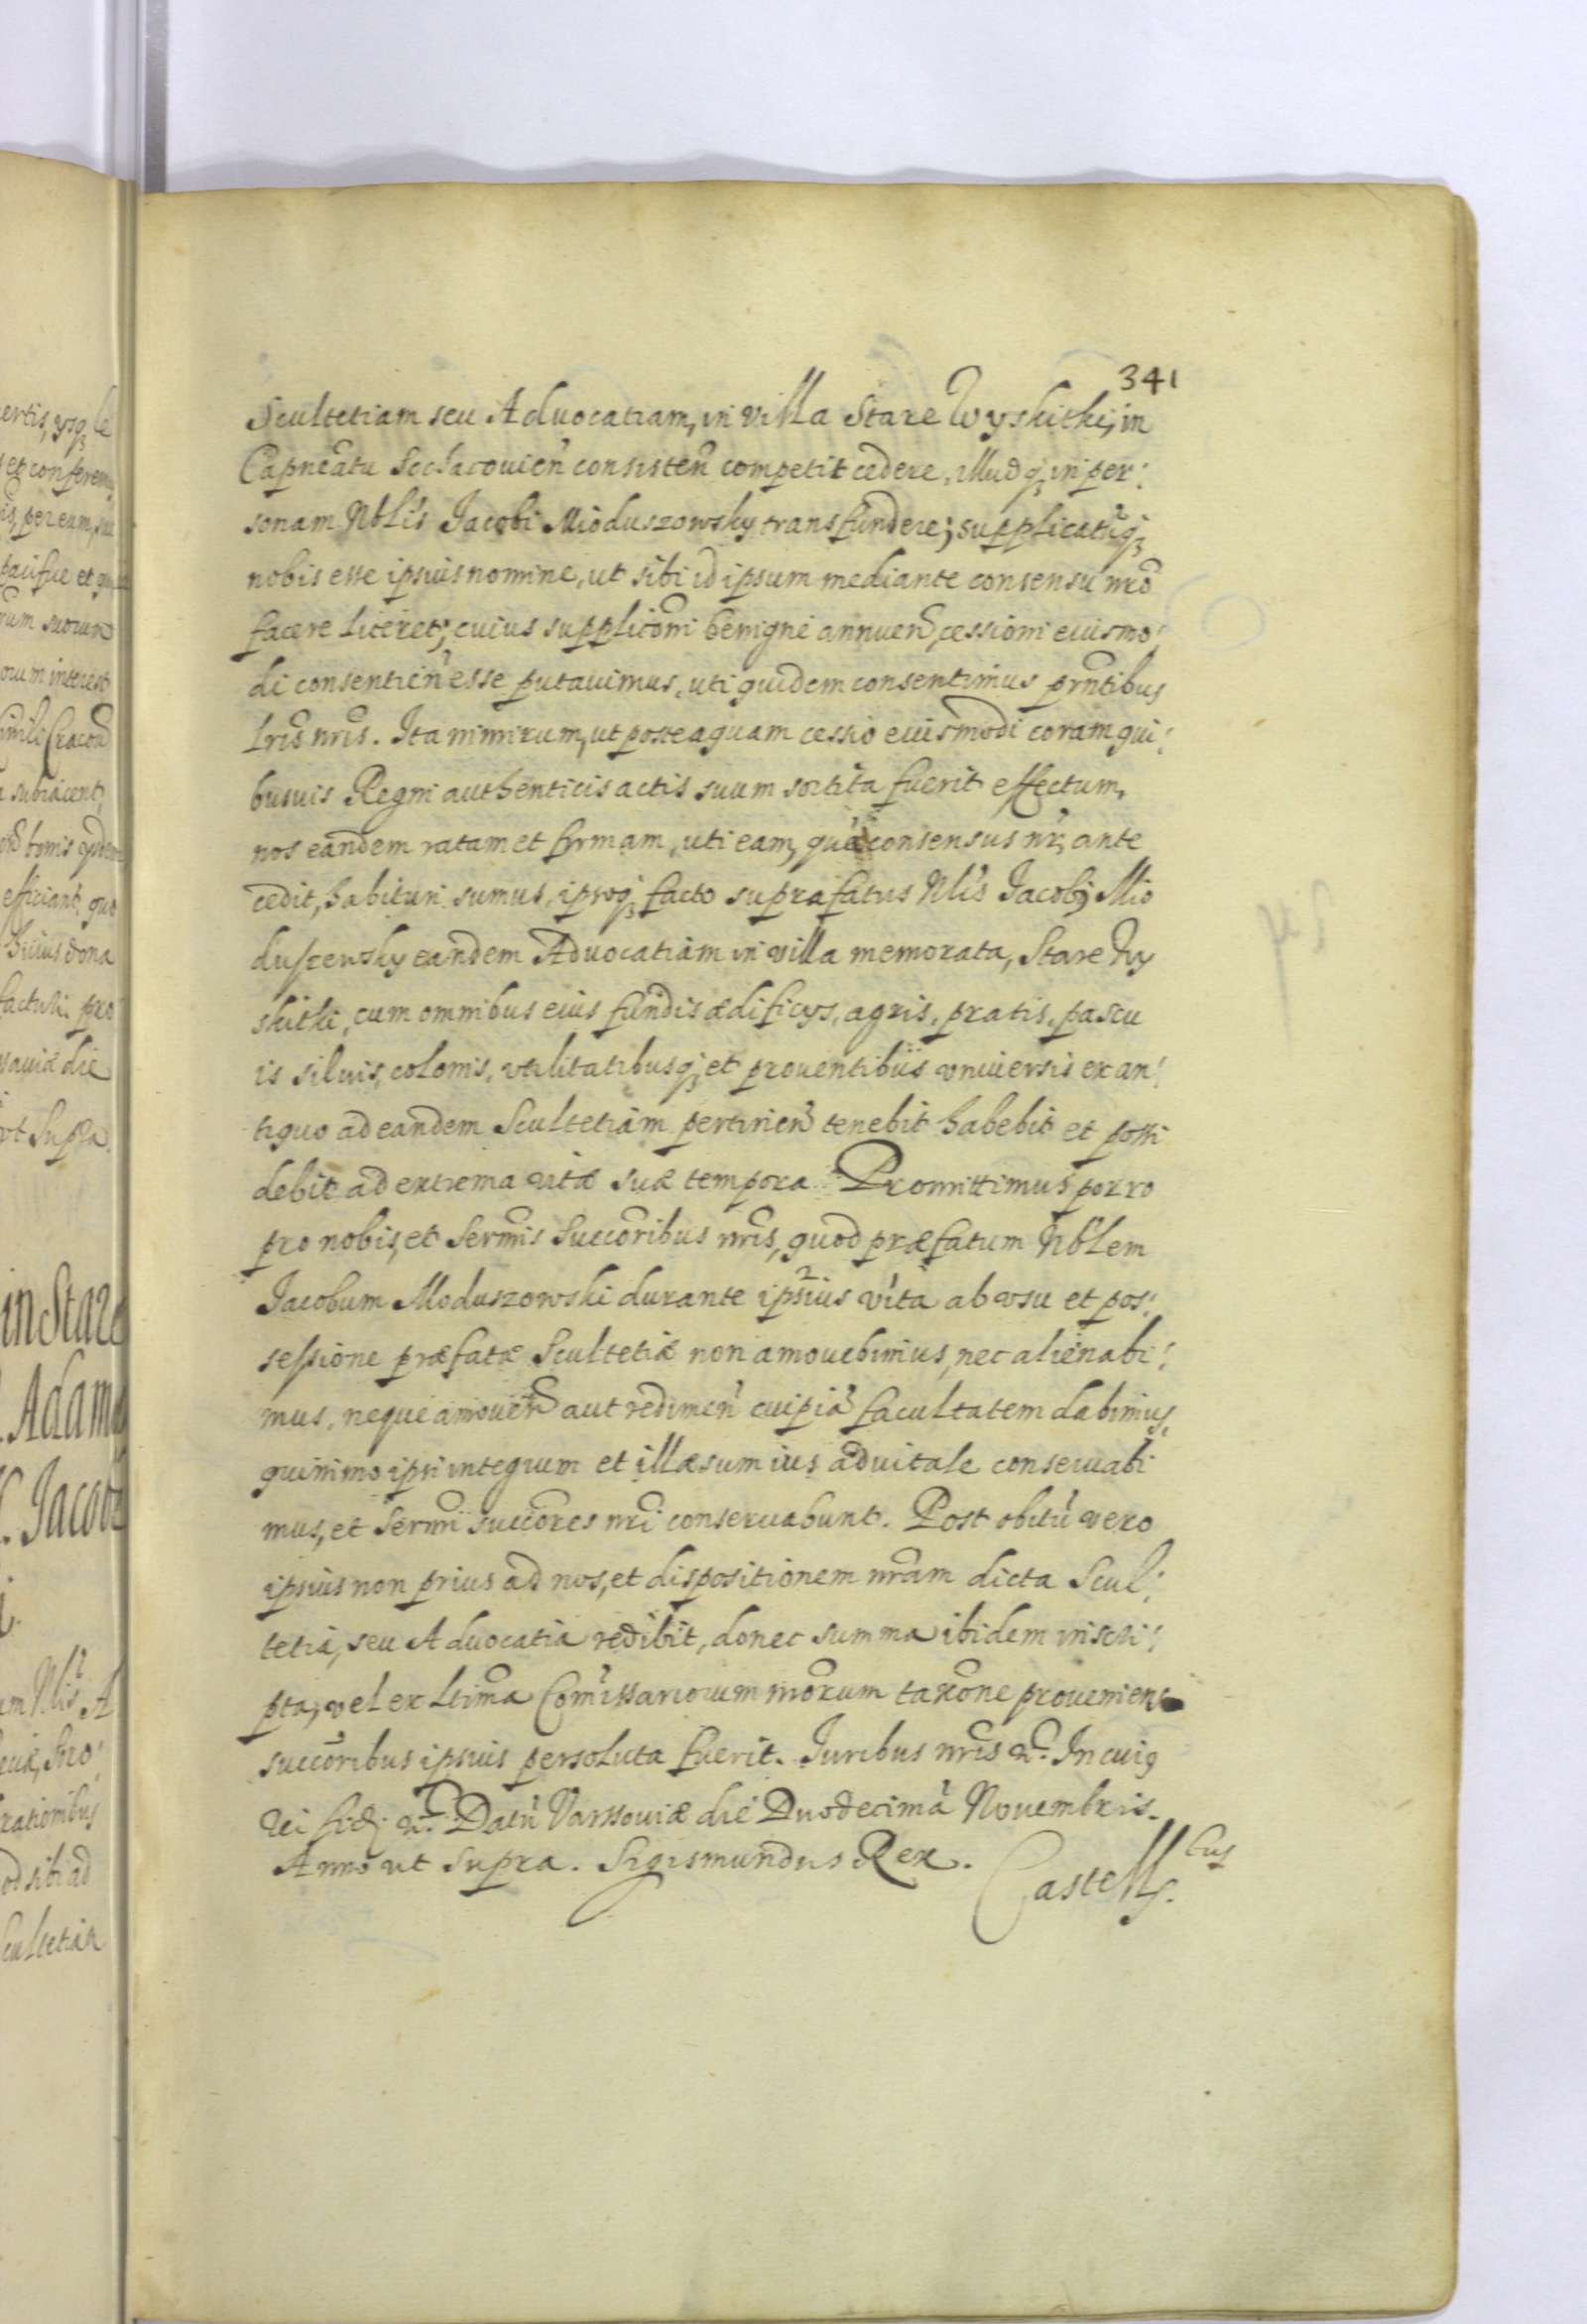 341
Scultetiam seu Advocatiam, in villa Stare Wyskitki, in
Capneatu Sochacouien consisten competit cedere, illudq3 in per:
sonam Nblis Jacobi Mioduszowsky transfundere; supplicatuq3
nobis esse ipsius nomine, ut sibi id ipsum mediante consensu nro
facere liceret; cuius suppliconi benigne annuen, cessioni eiusmo:
di consentien esse putauimus, uti quidem consentimus prntibus
Lris nris. Ita nimirum, ut posteaquam cessio eiusmodi coram qui:
busuis Regni authenticis actis suum sortita fuerit effectum,
nos eandem ratam et firmam, uti eam, qua consensus nr, ante
cedit, habituri sumus, ipsoq3 facto suprafatus Nlis Jacobq Mio
duszewsky eandem Advocatiam in villa memorata, Stare Wy
skitki, cum omnibus eius fundis ædificys, agris, pratis, pascu
is siluis, colonis, vtilitatibusq3 et prouentibus vniuersis ex an:
tiquo ad eandem Scultetiam pertinen tenebit habebit et possi
debit ad extrema vitæ suæ tempora. Promittimus porro
pro nobis, et Sermis Succoribus nris, quod præfatum Nblem
Jacobum Moduszowski durante ipsius vita ab vsu et pos:
sessione præfatæ Scultetiæ non amouebimus, nec alienabi:
mus, neque amouen aut redimen cuipia facultatem dabimus,
quinimo ipsi integrum et illæsum ius aduitale conseruabi
mus, et Sermi succores nri conseruabunt. Post obitu vero
ipsius non prius ad nos, et dispositionem nram dicta Scul:
tetia, seu Advocatia redibit, donec summa ibidem inscri:
pta, vel ex Ltima Comissariorum nrorum taxone proueniens
succoribus ipsius persoluta fuerit. Juribus nris &c. In cuiq
rei fide &c. Datu Varssouiæ die Duodecima Nouembris.
Anno ut supra. Sigismundus Rex.
Castellq.